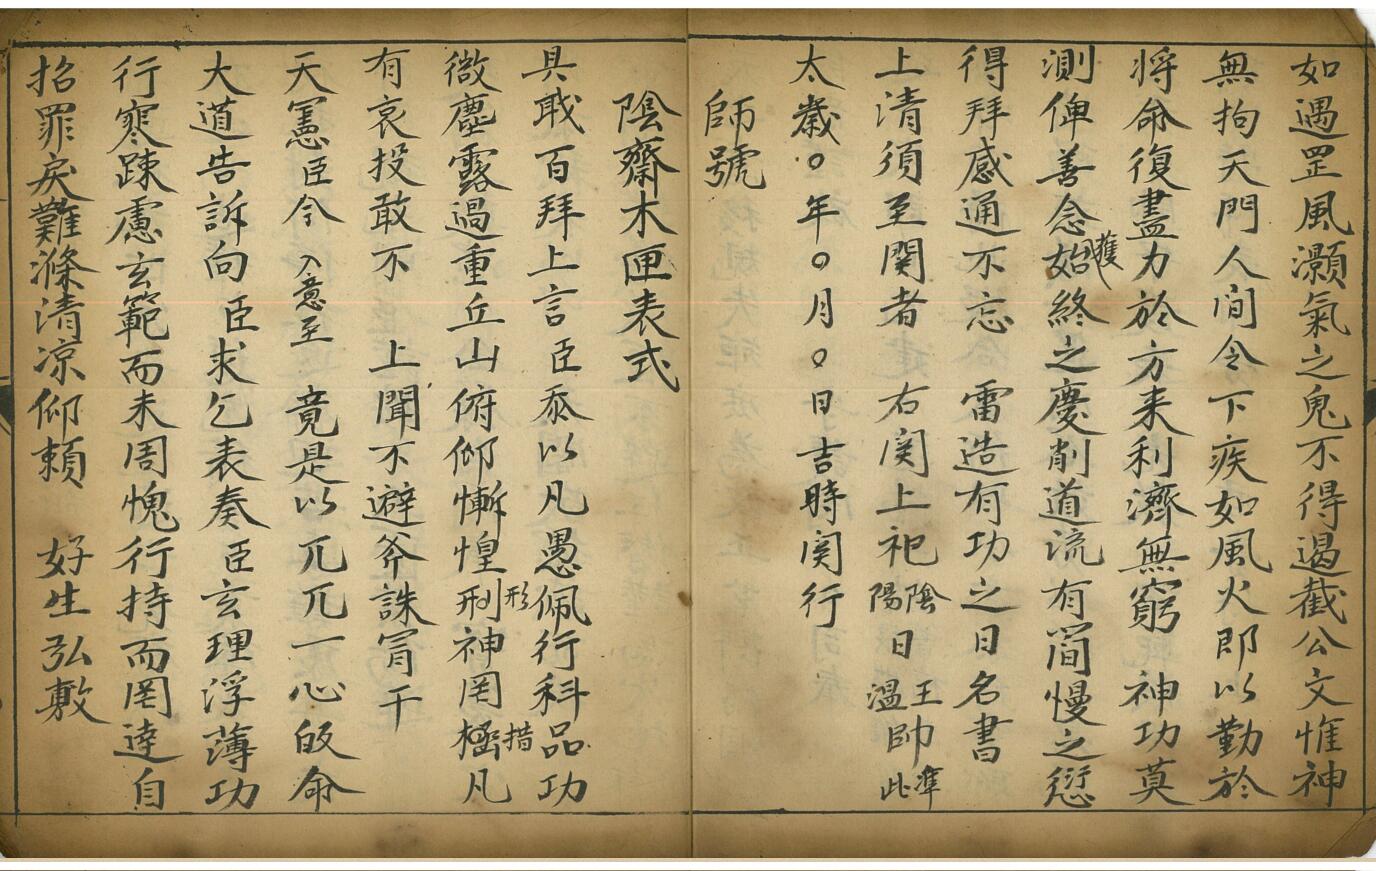 如遇罡風灝氣之鬼不得遏截公文惟神
無拘天門人間令下疾如風火即以勤於
將命復盡力於方来利濟無窮神功莫
測俾善念始獲終之慶削道流有簡慢之愆
得拜感通不忘　雷造有功之日名書
上清須至関者　右関上祀陰陽日王溫帥準此
太歲〇年〇月〇日吉時関行
師號
陰齋木匣表式
具戢百拜上言臣忝以凡愚佩行科品功
微塵露過重丘山俯仰慚惶刑形神罔極措凡
有哀投敢不　上聞不避斧誅冐干
天憲臣今入意至　竟是以兀兀一心皈命
大道告訴向臣求乞表奏臣玄理浮薄功
行寒踈慮玄範而未周愧行持而罔逹自
招罪戾難滌清凉仰賴　好生弘敷